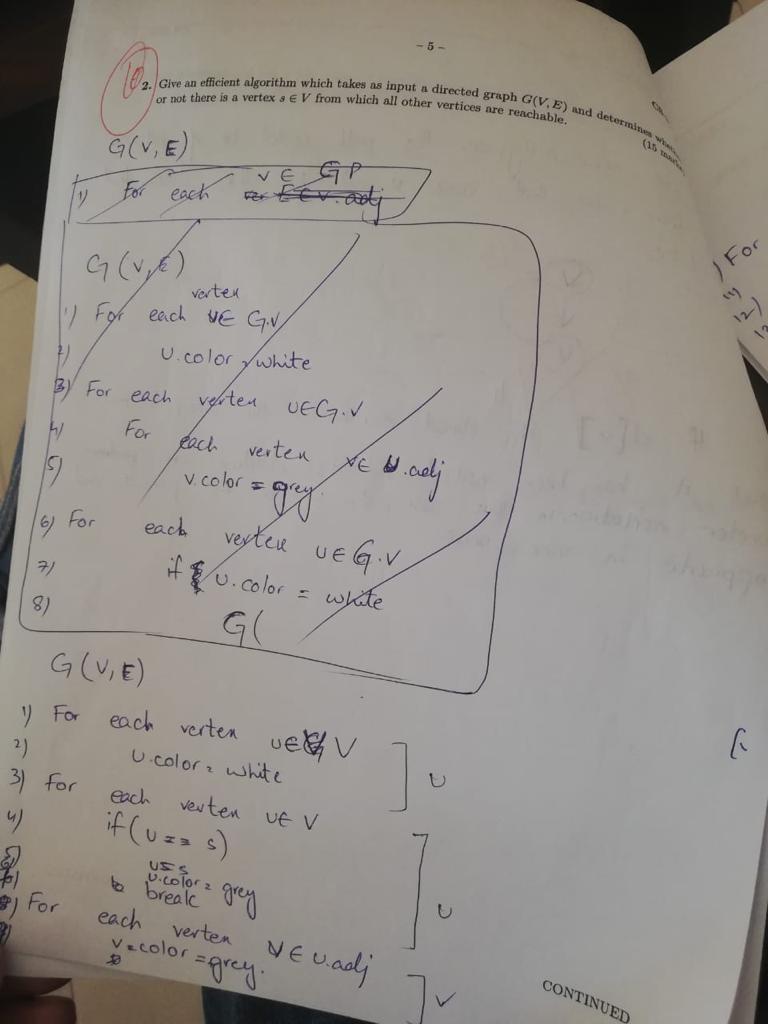 - 5 -
10
2. Give an efficient algorithm which takes as input a directed graph G(V, E) and determines
or not there is a vertex s ∈ V from which all other vertices are reachable.
(15
G(V,E)
v ∈ G
1) For each E ∈ v.adj
G(V,E)
vertex
1) For each u ∈ G.V
2) u.color = white
3) For each vertex u ∈ G.V
4) For each vertex v ∈ u.adj
5) v.color = grey
6) For each vertex u ∈ G.V
7) if u.color = white
8) G(
G(V,E)
1) For each vertex u ∈ V
2) u.color = white
] U
3) For each vertex u ∈ V
4) if (u == s)
u = s
u.color = grey
break
] U
8) For each vertex v ∈ u.adj
v.color = grey.
] V
CONTINUED
) For
11)
12)